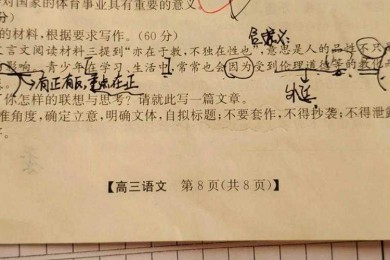 对国家的体育事业具有重要的意义
分)
的材料,根据要求写作。(60分)
言文阅读材料三提到“亦在于教,不独在性也”,意思是人的品性不只
影响。青少年在学习、生活中,常常也会因为受到伦理道德等的教
有正有反,重点在正
你怎样的联想与思考?请就此写一篇文章。
准角度,确定立意,明确文体,自拟标题;不要套作,不得抄袭;不得泄露
。
【高三语文 第8页(共8页)】